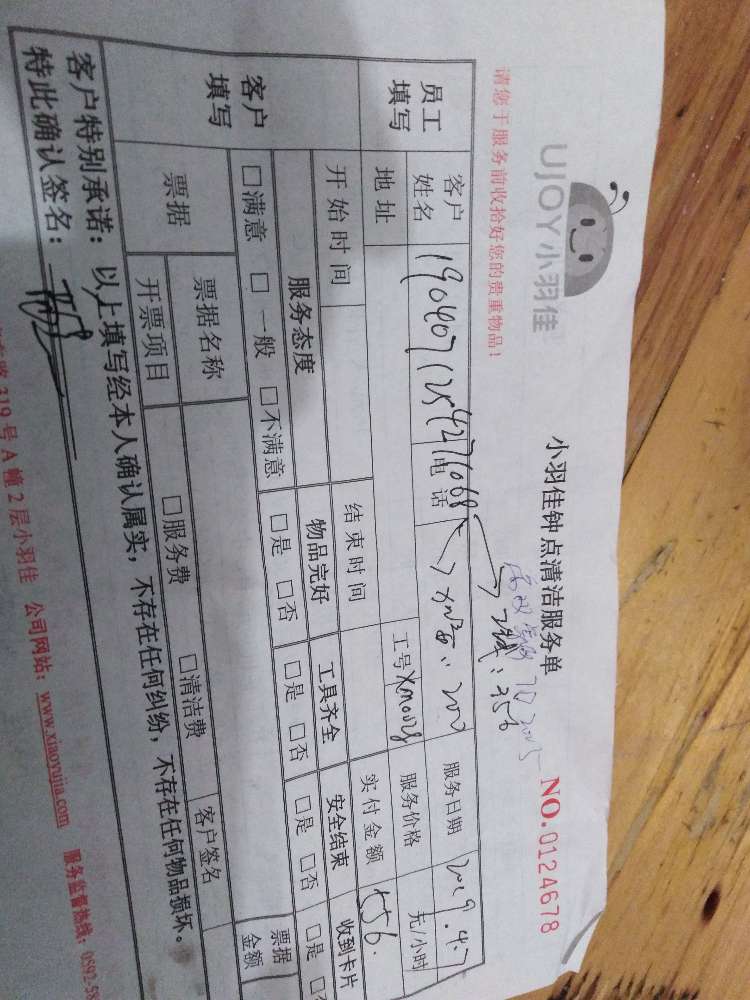 UJOY小羽佳
小羽佳钟点清洁服务单
NO.0124678
请您于服务前收拾好您的贵重物品!
员工填写
客户姓名
电话
服务日期 2019.4.7
地址
工号 Xm0028
服务价格 元/小时
开始时间
结束时间
实付金额 556.
客户填写
服务态度 物品完好 工具齐全 安全结束 收到卡片
□满意 □一般 □不满意 □是 □否 □是 □否 □是 □否 □是
票据 票据名称 客户签名 票据金额
开票项目 □服务费 □清洁费
客户特别承诺:以上填写经本人确认属实,不存在任何纠纷,不存在任何物品损坏。
特此确认签名:
319号A幢2层小羽佳 公司网站:www.xiaoyujia.com 服务监督热线:0592-58